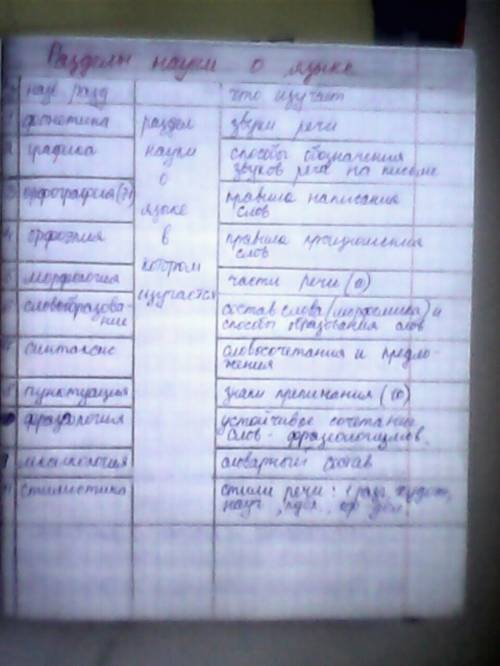 Разделы науки о языке
назв разд что изучает
1 фонетика раздел звуки речи
2 графика науки способы обозначения
о звуков речи на письме
3 орфография правила написания
языке слов
4 орфоэпия в правила произношения
слов
котором
5 морфология части речи
изучается
словообразова- состав слова (морфемика) и
ние способы образования слов
синтаксис словосочетания и предло-
жения
пунктуация знаки препинания (10)
фразеология устойчивое сочетание
слов - фразеологизмов.
лексикология словарный состав
стилистика стили речи: разг, худож,
науч, публ, оф дел.